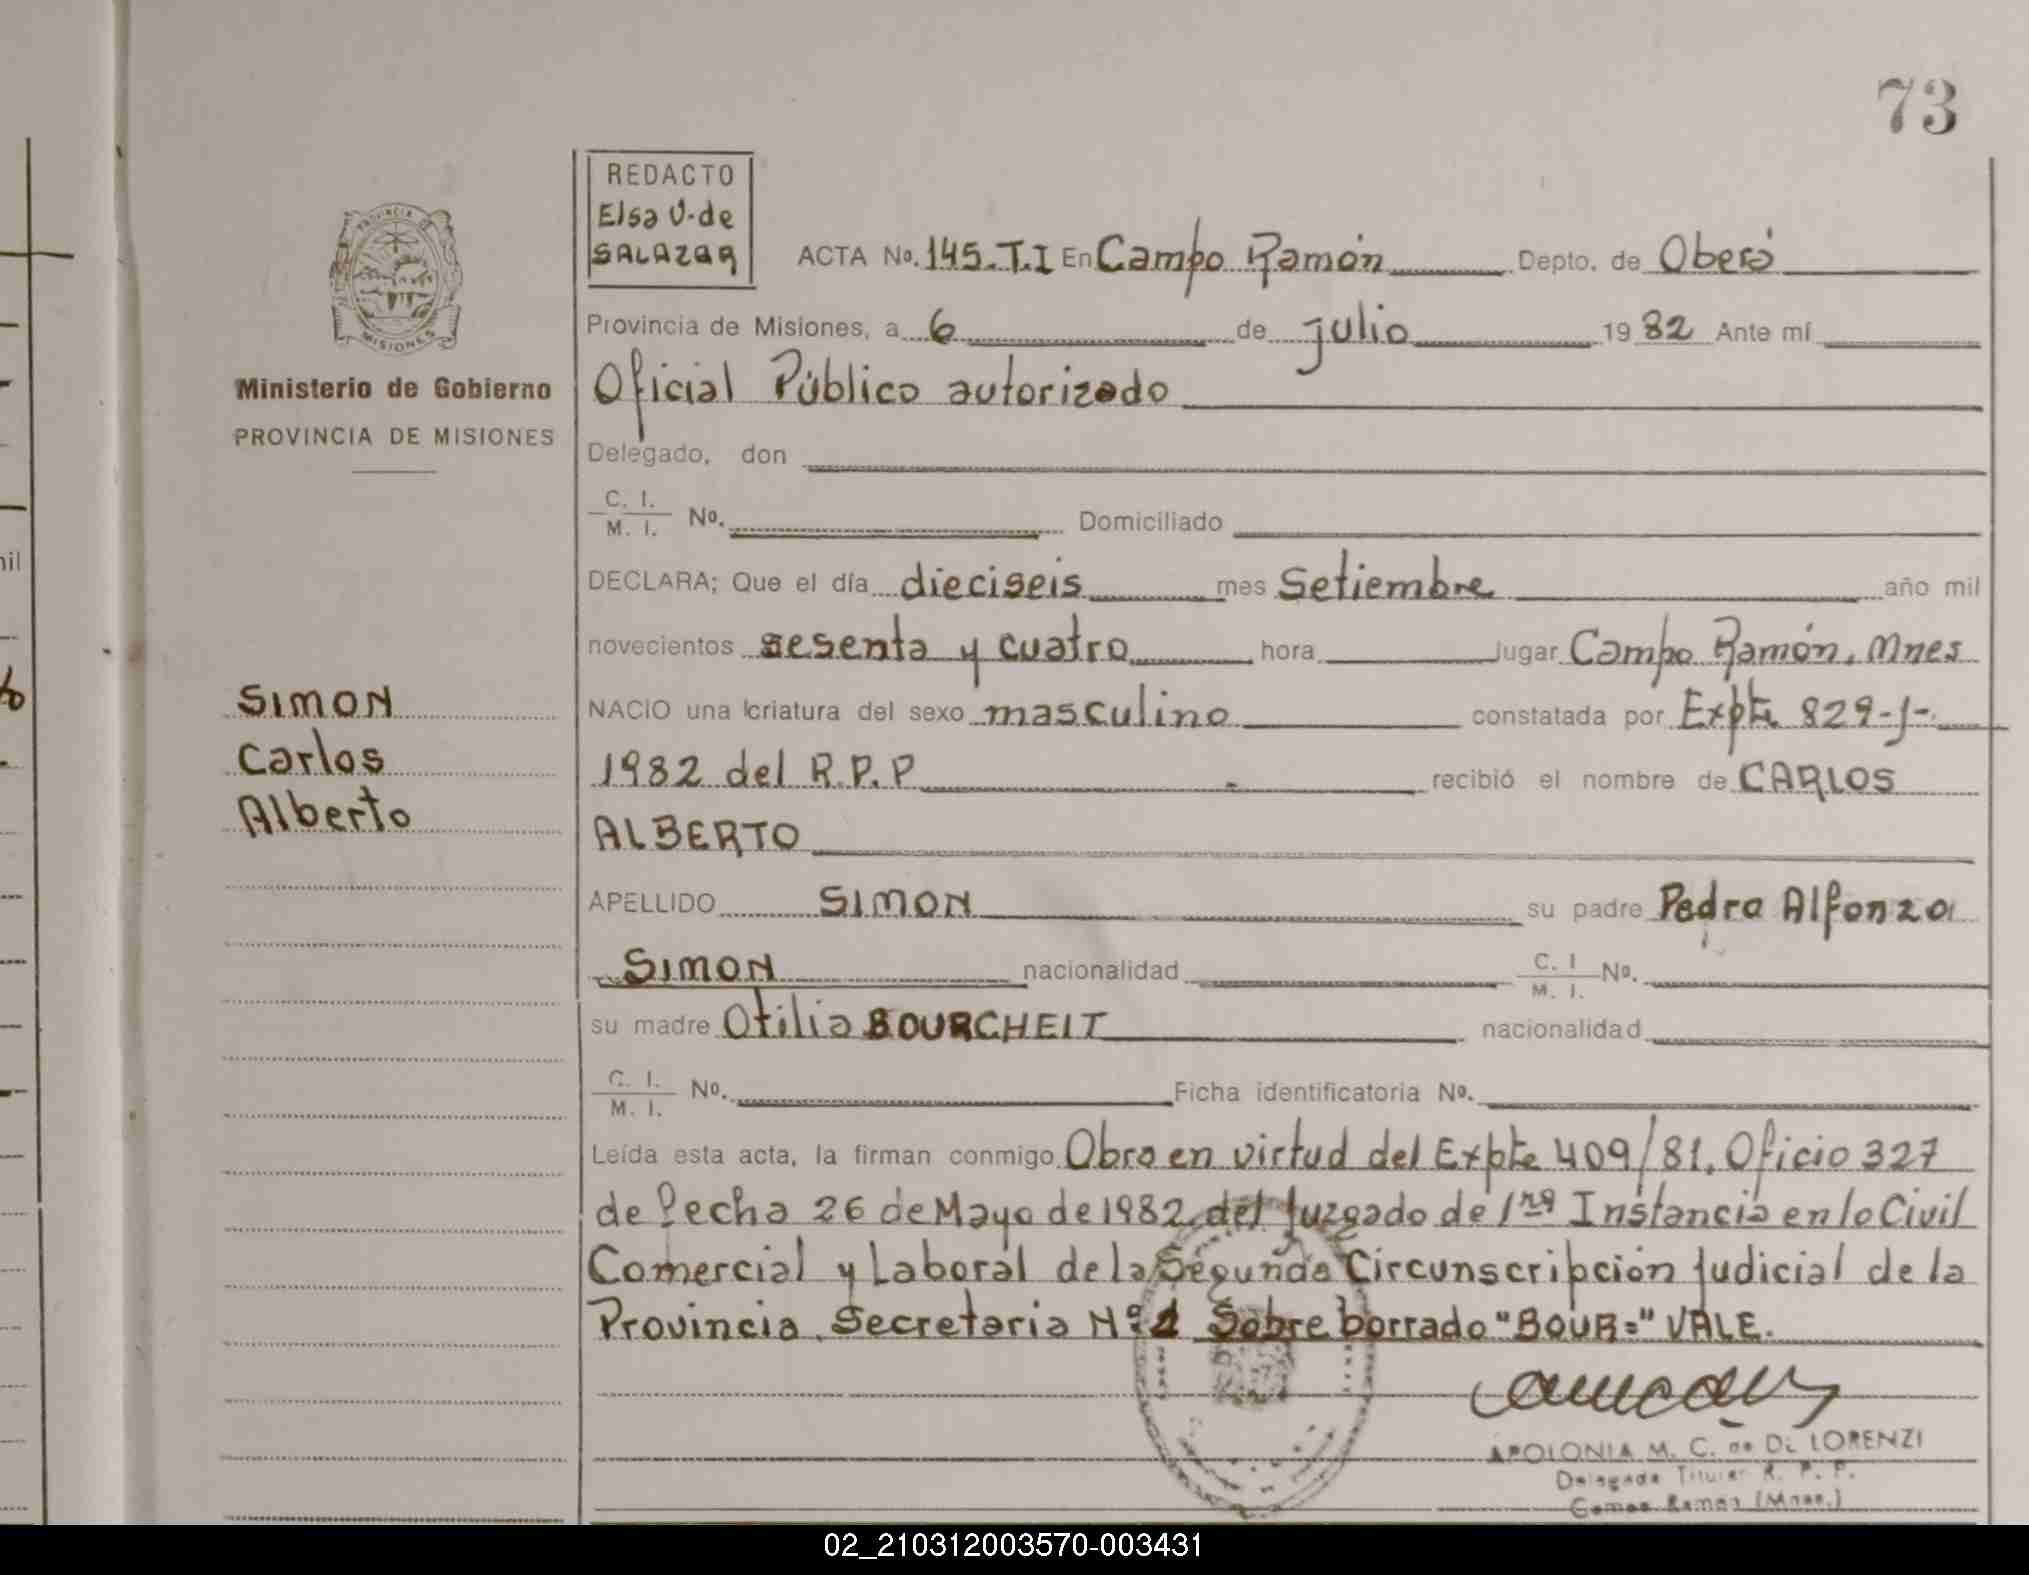 73
REDACTO
Elsa V. de
SALAZAR
ACTA No. 145.T.I En Campo Ramón Depto. de Oberá
Provincia de Misiones, a 6 de julio 1982 Ante mí
Oficial Público autorizado
Delegado, don
C. I.
M. I. No. Domiciliado
DECLARA; Que el día dieciseis mes Setiembre año mil
novecientos sesenta y cuatro hora lugar Campo Ramón, Mnes
NACIO una criatura del sexo masculino constatada por Expte 829-J-
1982 del R.P.P recibió el nombre de CARLOS
ALBERTO
APELLIDO SIMON su padre Pedro Alfonzo
SIMON nacionalidad C. I
M. I. No.
su madre Otilia BOURCHEIT nacionalidad
C. I.
M. I. No. Ficha identificatoria No.
Leída esta acta, la firman conmigo Obra en virtud del Expte 409/81. Oficio 327
de fecha 26 de Mayo de 1982 del Juzgado de 1ra Instancia en lo Civil
Comercial y Laboral de la Segunda Circunscripción Judicial de la
Provincia Secretaria Nº 1 Sobre borrado "BOUR=" VALE.
APOLONIA M. C. de DI LORENZI
Delegada Titular R. P. P.
Campo Ramón (Mnes.)
PROVINCIA DE
MISIONES
Ministerio de Gobierno
PROVINCIA DE MISIONES
SIMON
Carlos
Alberto
02_210312003570-003431